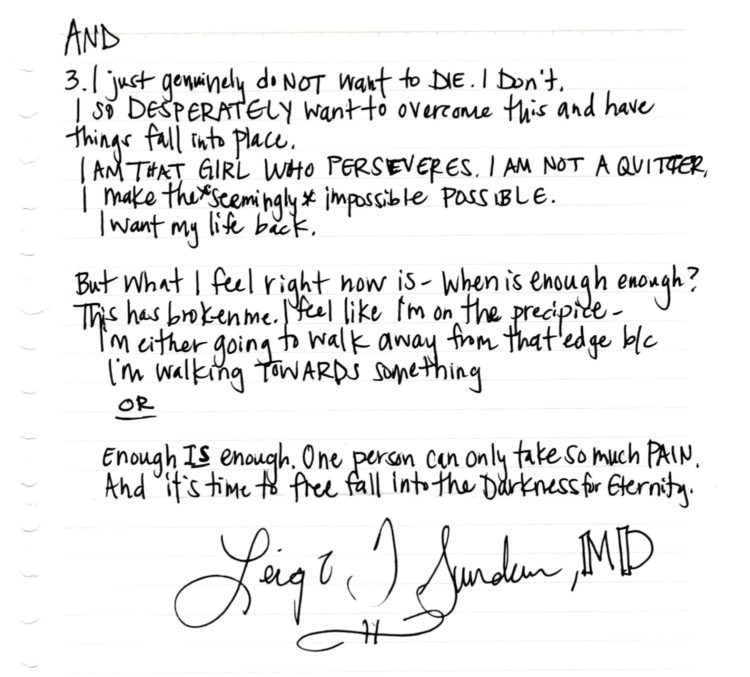 AND
3. I just genuinely do NOT want to DIE. I Don't.
I SO DESPERATELY want to overcome this and have
things fall into place.
I AM THAT GIRL WHO PERSEVERES. I AM NOT A QUITTER,
I make the *seemingly* impossible POSSIBLE.
I want my life back.
But what I feel right now is - when is enough enough?
This has broken me. I feel like I'm on the precipice -
I'm either going to walk away from that edge b/c
I'm walking TOWARDS something
OR
Enough IS enough. One person can only take so much PAIN.
And it's time to free fall into the Darkness for Eternity.
MD